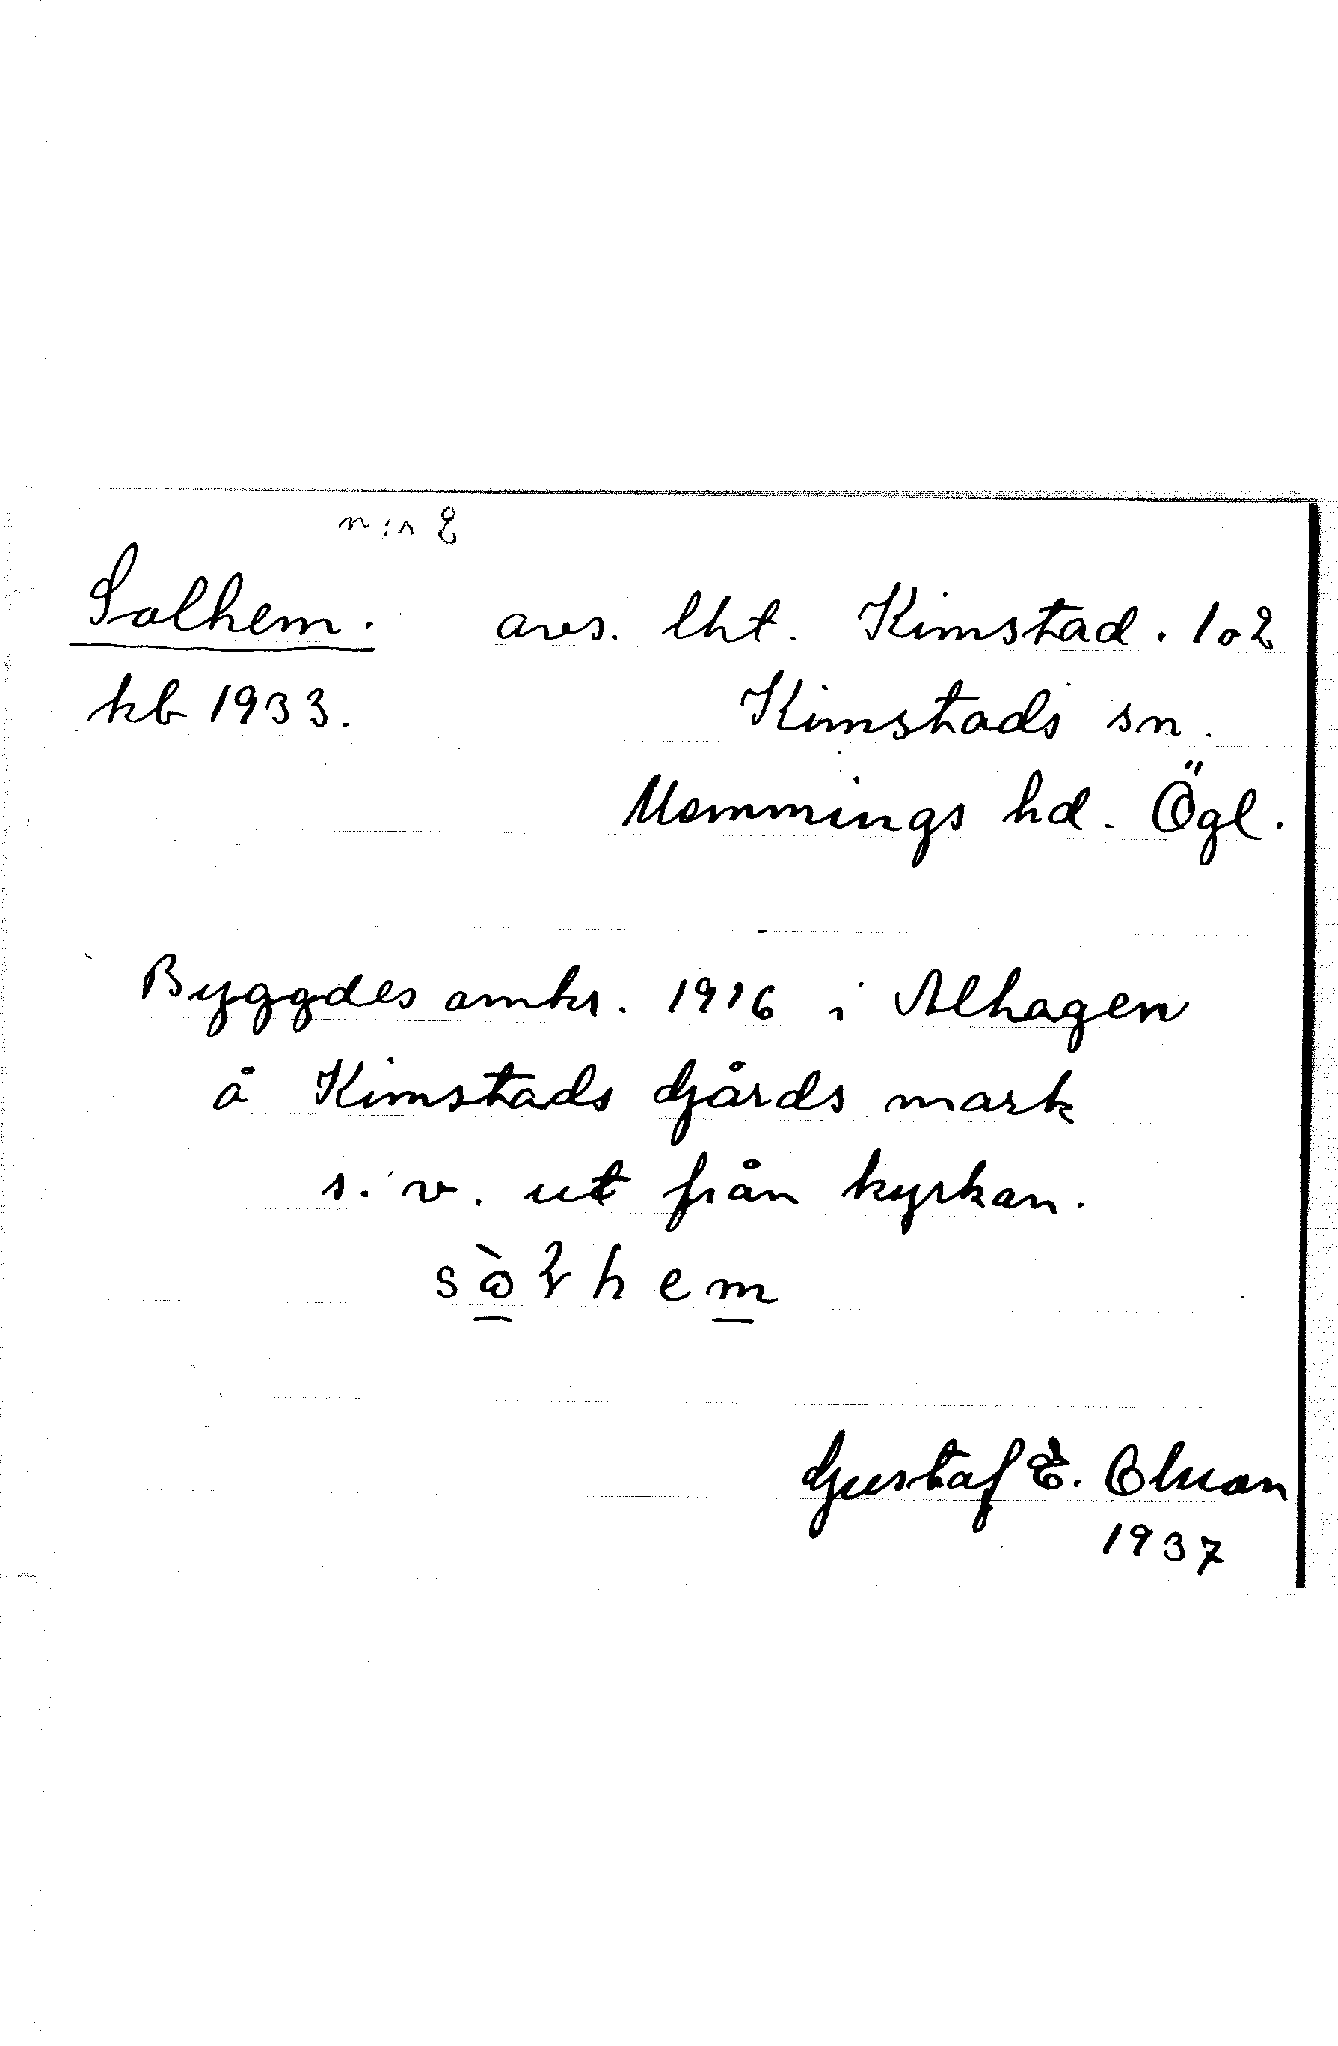 n:r 8
Solhem. avs. lht. Kimstad. 1 o 2
kb 1933. Kimstads sn.
Memmings hd. Ögl.
Byggdes omkr. 1916 i Alhagen
å Kimstads Gjårds mark
s. v. ut från kyrkan.
Gustaf E. Olsson
1937